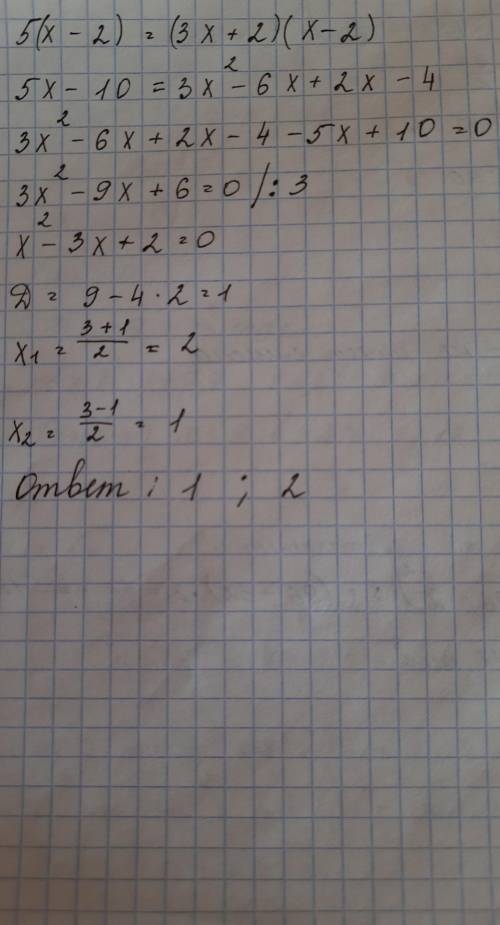 5(x - 2) = (3x + 2)(x - 2)
5x - 10 = 3x² - 6x + 2x - 4
3x² - 6x + 2x - 4 - 5x + 10 = 0
3x² - 9x + 6 = 0 /: 3
x² - 3x + 2 = 0
Д = 9 - 4 · 2 = 1
x₁ = (3+1)/2 = 2
x₂ = (3-1)/2 = 1
Ответ : 1 ; 2